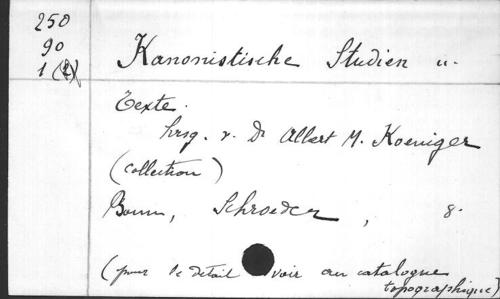 250
90
1 (2)
Kanonistische Studien u.
Texte.
hrsg. v. Dr Albert M. Koeniger
(collection)
Bonn, Schroeder, 8.
(pour le détail voir au catalogue
topographique)